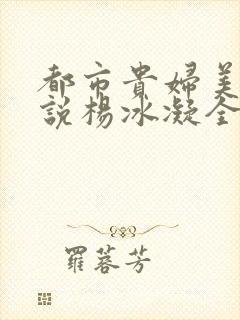 都市貴婦美
說楊冰凝全
羅蓉芳